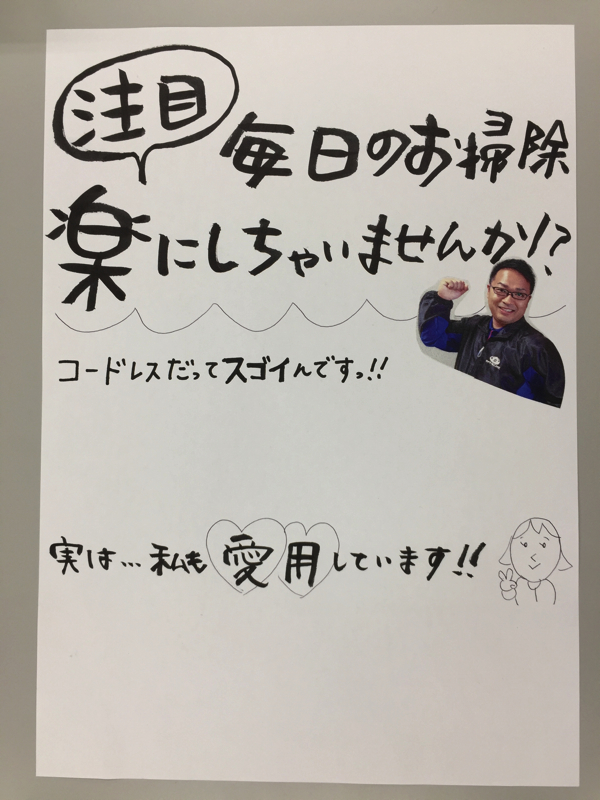 注目
毎日のお掃除
楽にしちゃいませんか!?
コードレスだってスゴイんですっ!!
実は…私も愛用しています!!